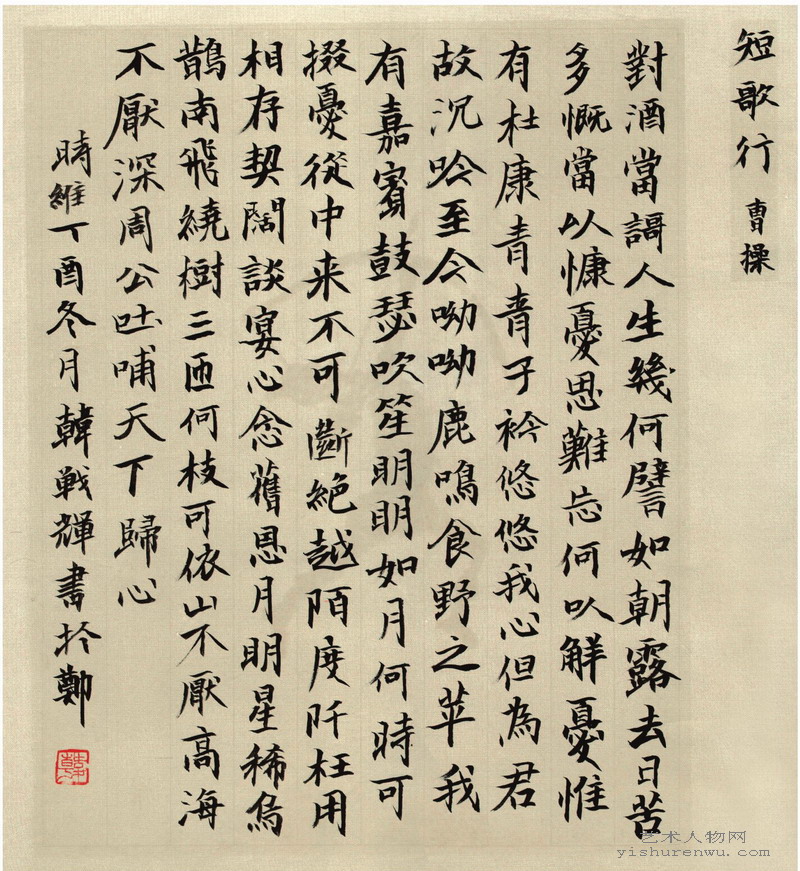 短歌行 曹操
對酒當謌人生幾何譬如朝露去日苦
多慨當以慷憂思難忘何以解憂惟
有杜康青青子衿悠悠我心但為君
故沉吟至今呦呦鹿鳴食野之苹我
有嘉賓鼓瑟吹笙明明如月何時可
掇憂從中来不可斷絶越陌度阡枉用
相存契闊談宴心念舊恩月明星稀烏
鵲南飛繞樹三匝何枝可依山不厭高海
不厭深周公吐哺天下歸心
時維丁酉冬月韓戰輝書扵鄭
艺术人物网
yishurenwu.com